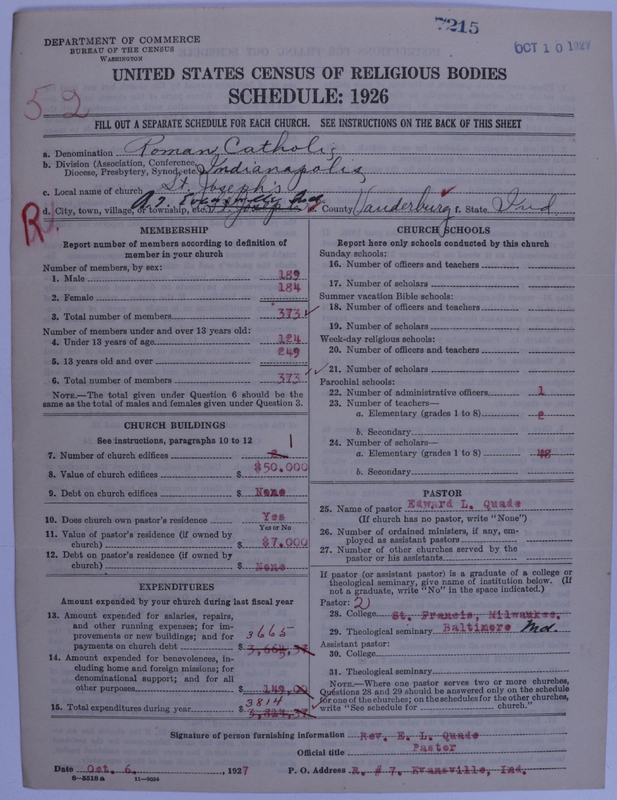 7215
OCT 10 1927
DEPARTMENT OF COMMERCE
BUREAU OF THE CENSUS
WASHINGTON
UNITED STATES CENSUS OF RELIGIOUS BODIES
SCHEDULE: 1926
52
FILL OUT A SEPARATE SCHEDULE FOR EACH CHURCH. SEE INSTRUCTIONS ON THE BACK OF THIS SHEET
a. Denomination Roman Catholic
b. Division (Association, Conference, Diocese, Presbytery, Synod, etc.) Indianapolis
c. Local name of church St. Joseph's
d. City, town, village, or township, etc. Evansville Ind St. Joseph e. County Vanderburg f. State Ind
R
MEMBERSHIP
Report number of members according to definition of
member in your church
Number of members, by sex:
1. Male 189
2. Female 184
3. Total number of members 373
Number of members under and over 13 years old:
4. Under 13 years of age 124
5. 13 years old and over 249
6. Total number of members 373
NOTE.—The total given under Question 6 should be
same as the total of males and females given under Question 3.
CHURCH BUILDINGS
See instructions, paragraphs 10 to 12
7. Number of church edifices 2 1
8. Value of church edifices $ $50.000
9. Debt on church edifices $ None
10. Does church own pastor's residence Yes
Yes or No
11. Value of pastor's residence (if owned by
church) $ $7.000
12. Debt on pastor's residence (if owned by
church) $ None
EXPENDITURES
Amount expended by your church during last fiscal year
13. Amount expended for salaries, repairs,
and other running expenses; for im-
provements or new buildings; and for
payments on church debt $ 3665 3,664,37
14. Amount expended for benevolences, in-
cluding home and foreign missions; for
denominational support; and for all
other purposes $ 149,00
15. Total expenditures during year $ 3814
CHURCH SCHOOLS
Report here only schools conducted by this church
Sunday schools:
16. Number of officers and teachers
17. Number of scholars
Summer vacation Bible schools:
18. Number of officers and teachers
19. Number of scholars
Week-day religious schools:
20. Number of officers and teachers
21. Number of scholars
Parochial schools:
22. Number of administrative officers 1
23. Number of teachers—
a. Elementary (grades 1 to 8) 2
b. Secondary
24. Number of scholars—
a. Elementary (grades 1 to 8)
b. Secondary
PASTOR
25. Name of pastor Edward L. Quade
(If church has no pastor, write "None")
26. Number of ordained ministers, if any, em-
ployed as assistant pastors
27. Number of other churches served by the
pastor or his assistants
If pastor (or assistant pastor) is a graduate of a college or
theological seminary, give name of institution below. (If
not a graduate, write "No" in the space indicated.)
Pastor: 2
28. College St. Francis, Milwaukee,
29. Theological seminary Baltimore Md.
Assistant pastor:
30. College
31. Theological seminary
NOTE.—Where one pastor serves two or more churches,
Questions 28 and 29 should be answered only on the schedule
for one of the churches; on the schedules for the other churches,
write "See schedule for church."
Signature of person furnishing information Rev. E. L. Quade
Official title Pastor
Date Oct. 6. , 1927 P. O. Address R. # 7. Evansville, Ind.
8—5518 a 11—9034